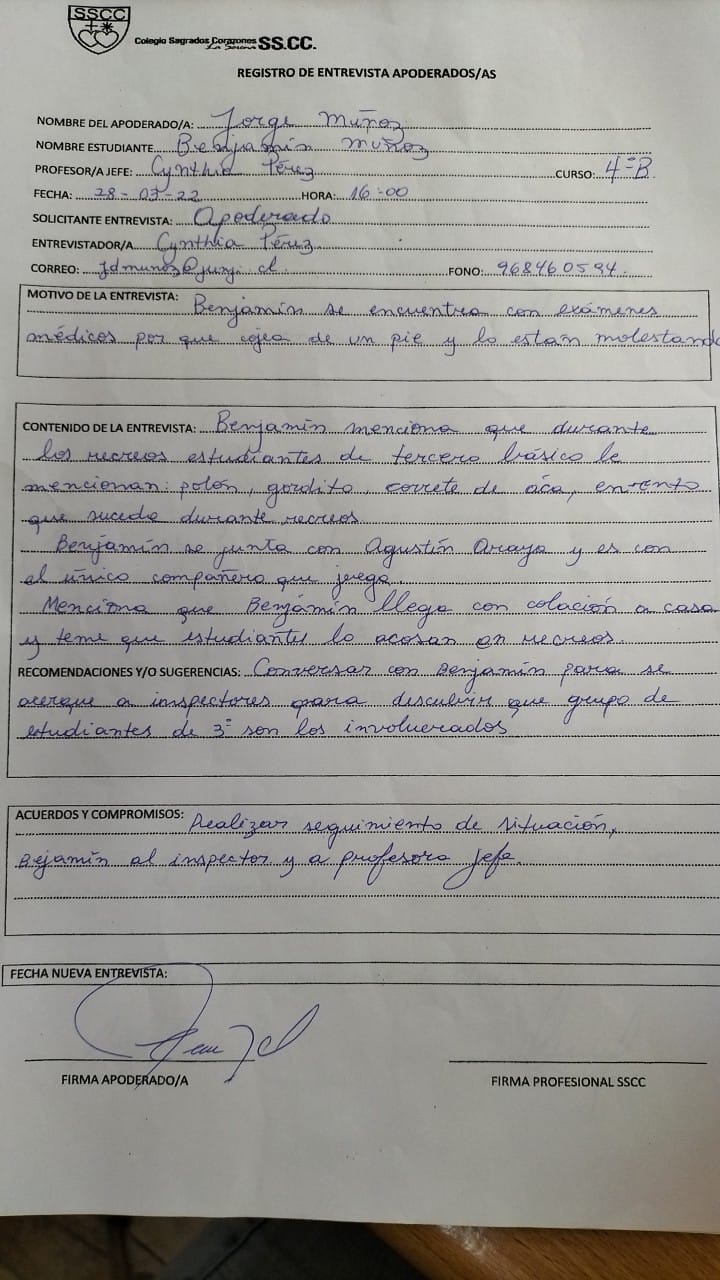 SSCC
Colegio Sagrados Corazones SS.CC.
La Serena
REGISTRO DE ENTREVISTA APODERADOS/AS
NOMBRE DEL APODERADO/A: Jorge Muñoz
NOMBRE ESTUDIANTE Benjamin Muñoz
PROFESOR/A JEFE: Cynthia Pérez CURSO: 4°B
FECHA: 28-07-22 HORA: 16:00
SOLICITANTE ENTREVISTA: Apoderado
ENTREVISTADOR/A Cynthia Pérez
CORREO: FONO:
MOTIVO DE LA ENTREVISTA: Benjamín se encuentra con exámenes
médicos por que cojea de un pie y lo estan molestando
CONTENIDO DE LA ENTREVISTA: Benjamín menciona que durante
los recreos estudiantes de tercero básico le
mencionan: polón, gordito, correte de aca,
que sucede durante recreos
Benjamín se junta con Agustín Araya y es con
el único compañero que juega.
Menciona que Benjamín llega con colación a casa
y teme que estudiantes lo acosan en recreos.
RECOMENDACIONES Y/O SUGERENCIAS: Conversar con Benjamín para se
acerque a inspectores para descubrir que grupo de
estudiantes de 3° son los involucrados
ACUERDOS Y COMPROMISOS: Realizar seguimiento de situación,
Bejamín al inspector y a profesora Jefe.
FECHA NUEVA ENTREVISTA:
FIRMA APODERADO/A FIRMA PROFESIONAL SSCC